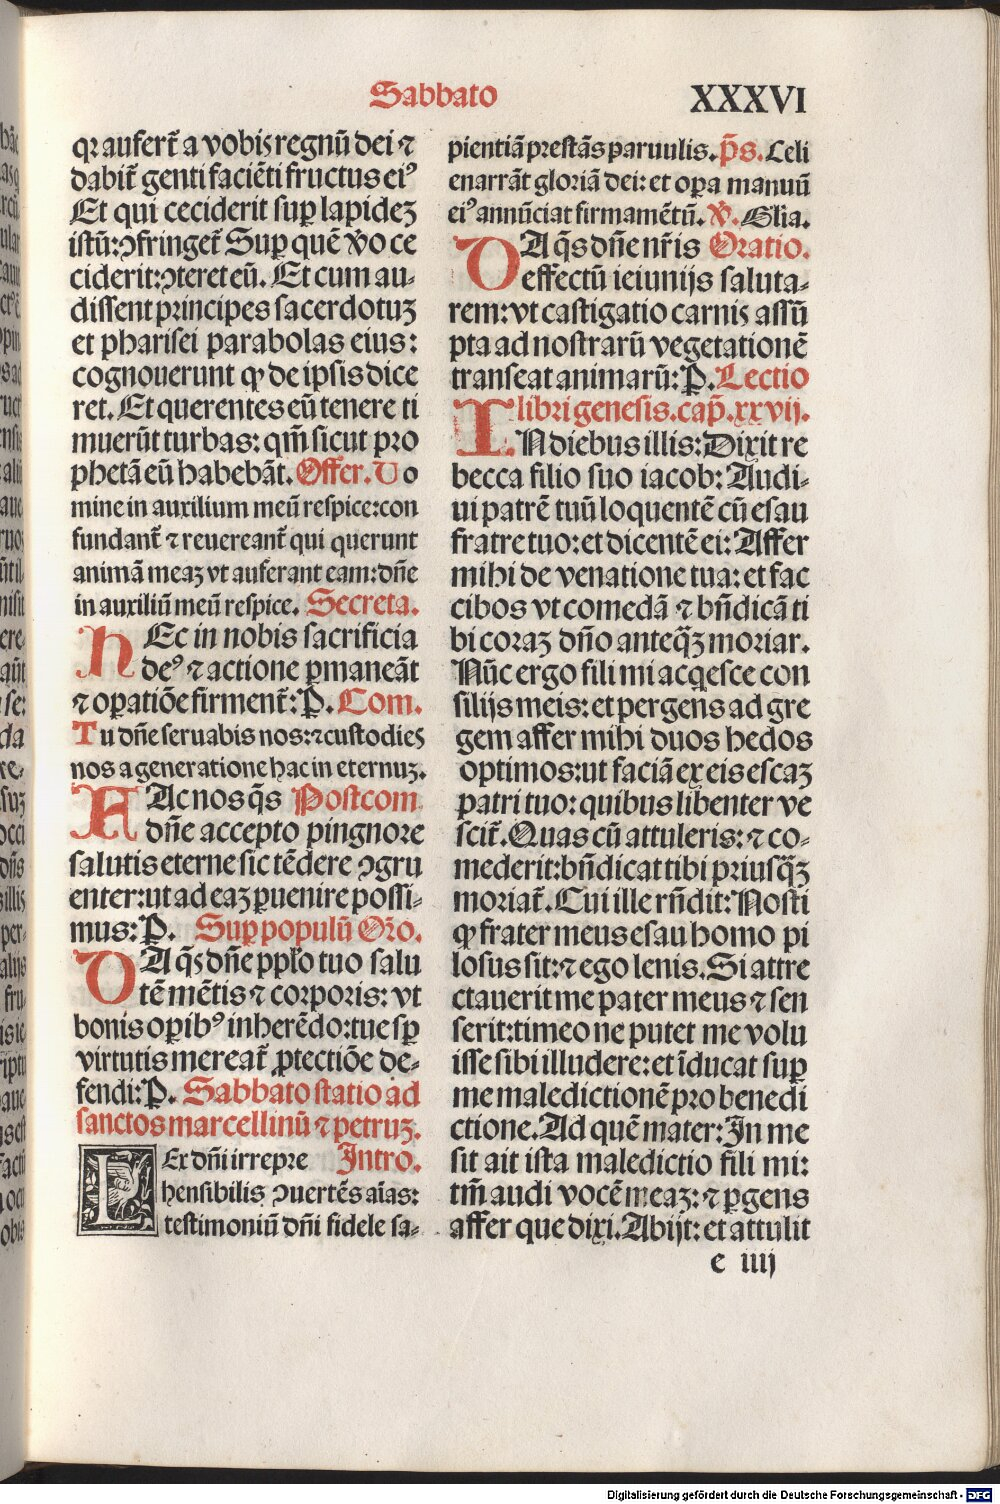 Sabbato
XXXVI
qꝛ aufert̄ a vobis regnū dei ⁊
dabit̄ genti faciēti fructus eiꝰ
Et qui ceciderit suꝑ lapideꝫ
istū: ꝯfringet̄ Suꝑ quē ꟟o ce
ciderit: ꝯteret eū. Et cum au-
dissent principes sacerdotuꝫ
et pharisei parabolas eius:
cognouerunt ꝙ de ipsis dice
ret. Et querentes eū tenere ti
muerūt turbas: qm̄ sicut pro
phetā eū habebāt. Offer. Do
mine in auxilium meū respice: con
fundant̄ ⁊ reuereant̄ qui querunt
animā meaꝫ vt auferant eam: dn̄e
in auxiliū meū respice. Secreta.
HEc in nobis sacrificia
deꝰ ⁊ actione ꝑmaneāt
⁊ oꝑatiōe firment̄: P̄. Com.
Tu dn̄e seruabis nos: ⁊ custodies
nos a generatione hac in eternuꝫ.
FAc nos q̄s Postcom
dn̄e accepto pingnore
salutis eterne sic tēdere ꝯgru
enter: ut ad eaꝫ ꝑuenire possi-
mus: P̄. Suꝑ populū Oꝛo.
DA q̄s dn̄e pplo tuo salu
tē mētis ⁊ corporis: vt
bonis oꝑibꝰ inherēdo: tue sꝑ
virtutis mereat̄ ꝓtectiōe de-
fendi: P̄. Sabbato statio ad
sanctos marcellinū ⁊ petruꝫ.
LEx dn̄i irrepre Intro.
hensibilis ꝯuertēs aīas:
testimoniū dn̄i fidele sa-
pientiā prestās paruulis. p̄s. Celi
enarrāt gloriā dei: et oꝑa manuū
eiꝰ annūciat firmamētū. ℣. Glīa.
DA q̄s dn̄e nr̄is Oratio.
effectū ieiunijs saluta-
rem: vt castigatio carnis assū
pta ad nostrarū vegetationē
transeat animarū: P̄. Lectio
libri genesis. cap̄. xxvij.
IN diebus illis: Dixit re
becca filio suo iacob: Audi-
ui patrē tuū loquentē cū esau
fratre tuo: et dicentē ei: Affer
mihi de venatione tua: et fac
cibos vt comedā ⁊ bn̄dicā ti
bi coraꝫ dn̄o anteq̄ꝫ moriar.
Nūc ergo fili mi acq̇esce con
silijs meis: et pergens ad gre
gem affer mihi duos hedos
optimos: ut faciā ex eis escaꝫ
patri tuo: quibus libenter ve
scit̄. Quas cū attuleris: ⁊ co-
mederit: bn̄dicat tibi priusq̄ꝫ
moriat̄. Cui ille rn̄dit: Nosti
ꝙ frater meus esau homo pi
losus sit: ⁊ ego lenis. Si attre
ctauerit me pater meus ⁊ sen
serit: timeo ne putet me volu
isse sibi illudere: et īducat suꝑ
me maledictionē pro benedi
ctione. Ad quē mater: In me
sit ait ista maledictio fili mi:
tm̄ audi vocē meaꝫ: ⁊ ꝑgens
affer que dixi. Abijt: et attulit
e iiij
Digitalisierung gefördert durch die Deutsche Forschungsgemeinschaft - DFG